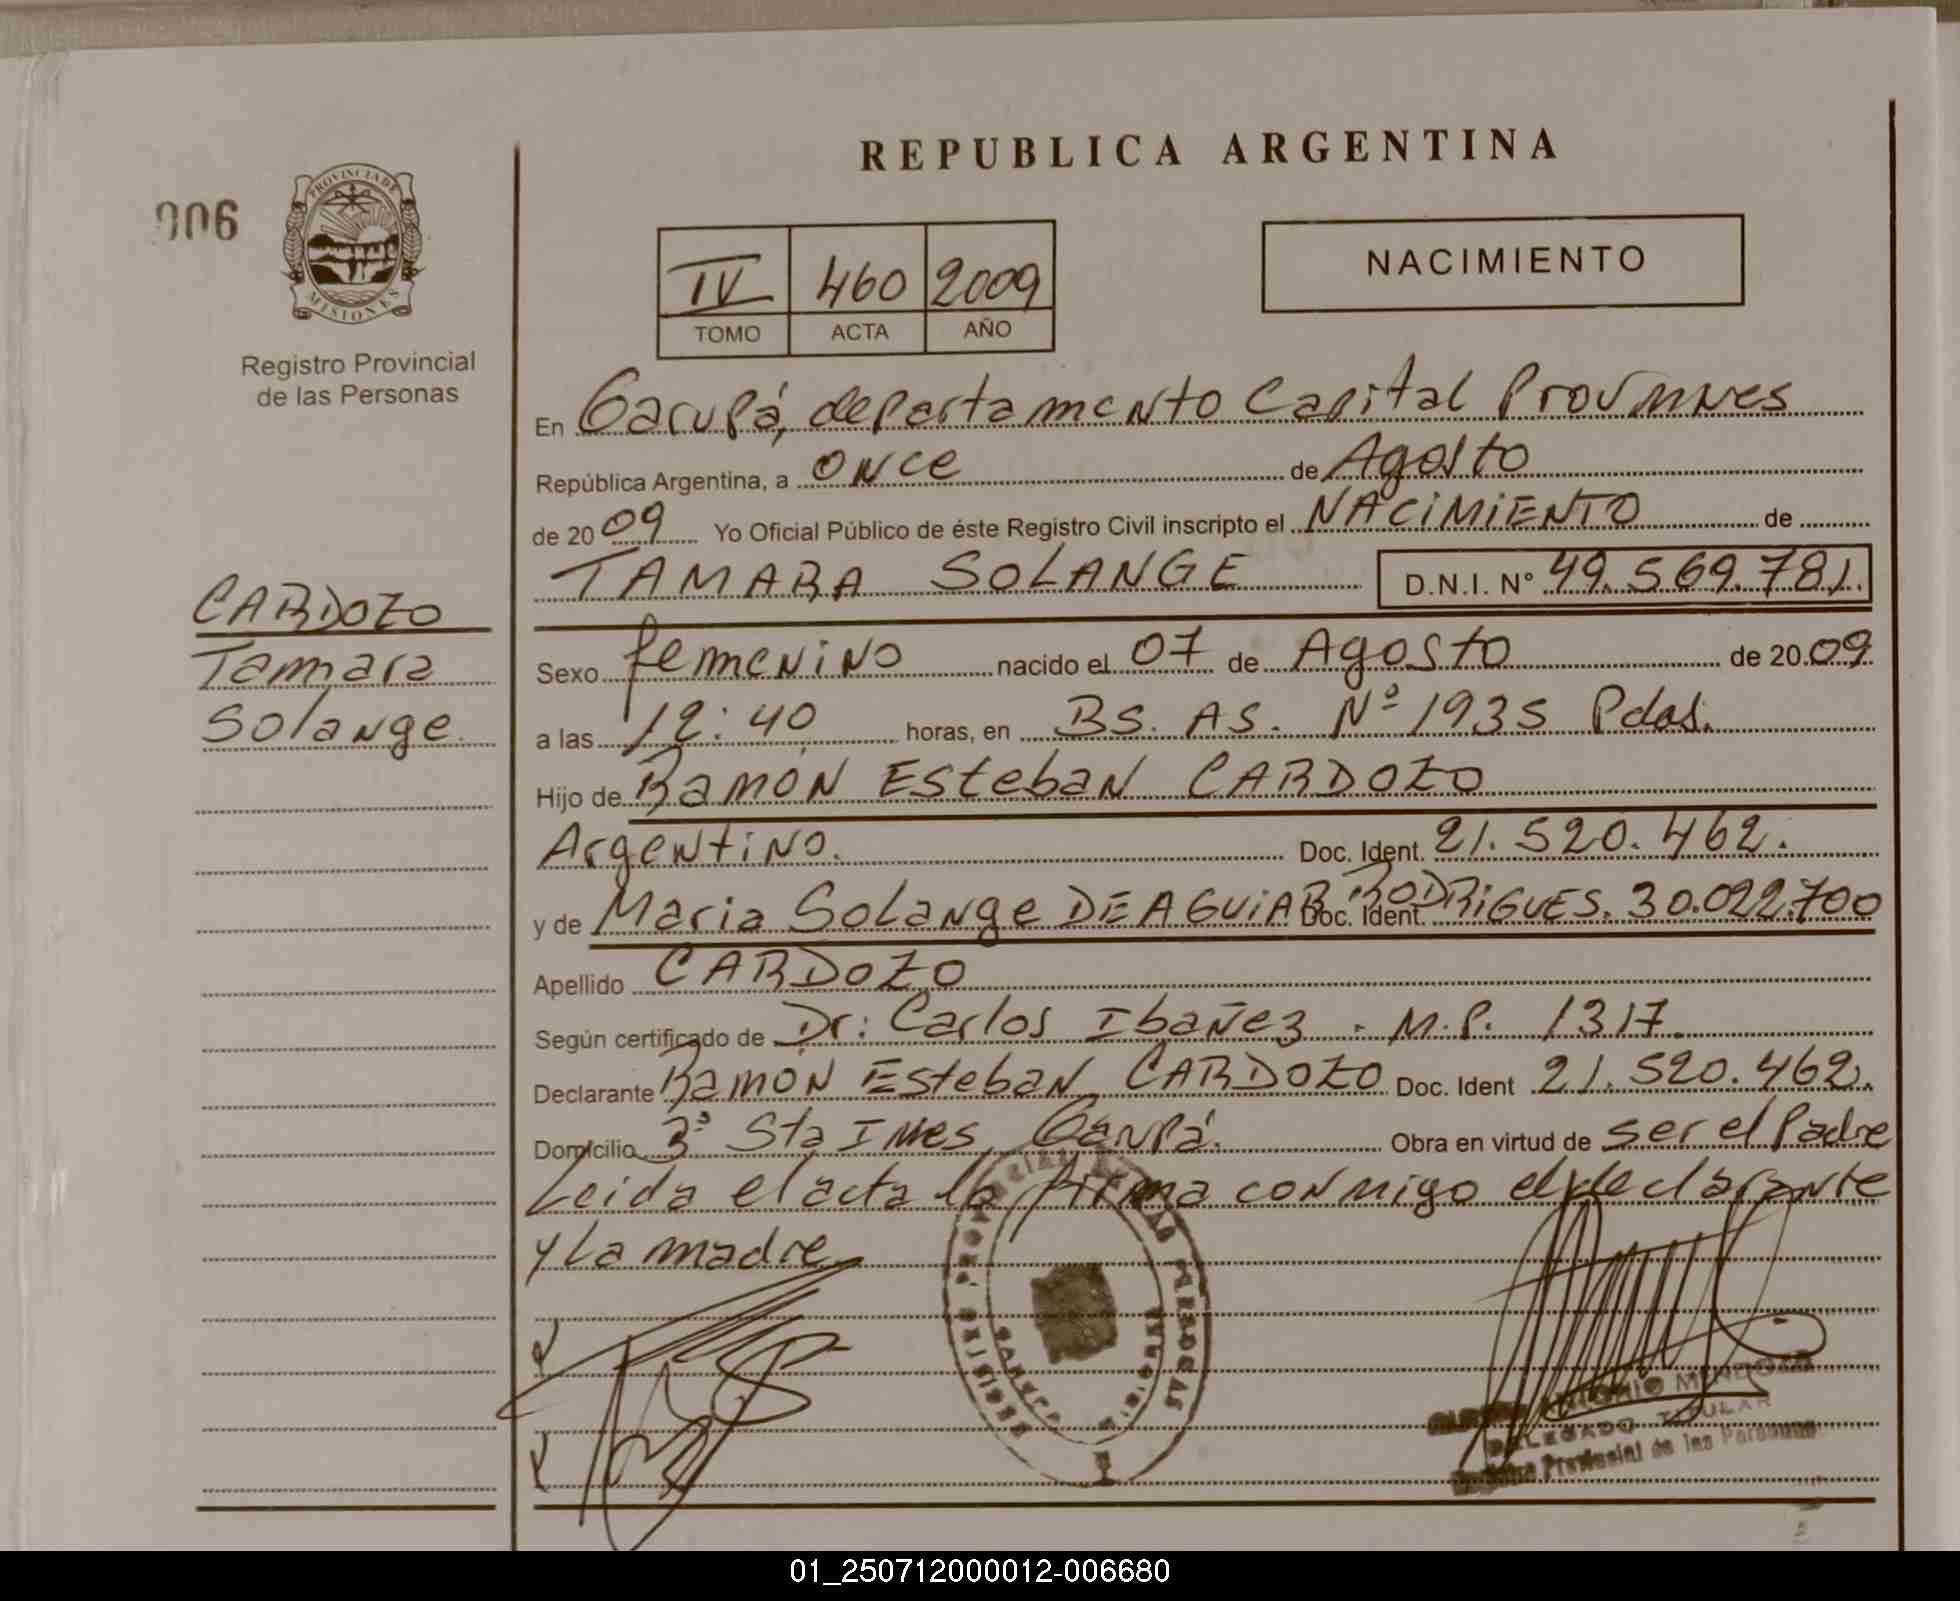 REPUBLICA ARGENTINA
006
PROVINCIA DE
MISIONES
Registro Provincial
de las Personas
IV 460 2009
TOMO ACTA AÑO
NACIMIENTO
En Garupá, departamento Capital Prov
República Argentina, a once de Agosto
de 2009 Yo Oficial Público de éste Registro Civil inscripto el NACIMIENTO de
TAMARA SOLANGE D.N.I. Nº 49.569.781.
CARDOZO
Tamara
Solange.
Sexo femenino nacido el 07 de Agosto de 2009
a las 12:40 horas, en BS. AS. Nº 1935 Pdas.
Hijo de Ramón Esteban CARDOZO
Argentino. Doc. Ident. 21.520.462.
y de Maria Solange DE AGUIAR RODRIGUES. Doc. Ident. 30.022.700
Apellido CARDOZO
Según certificado de Dr: Carlos Ibañez. M.P. 1317.
Declarante Ramón Esteban CARDOZO Doc. Ident 21.520.462.
Domicilio Sta Ines Garupá. Obra en virtud de ser el Padre
Leida el acta la firma conmigo el declarante
y La madre
ANTONIO MENDOZA
DELEGADO TITULAR
Provincial de las Personas
01_250712000012-006680